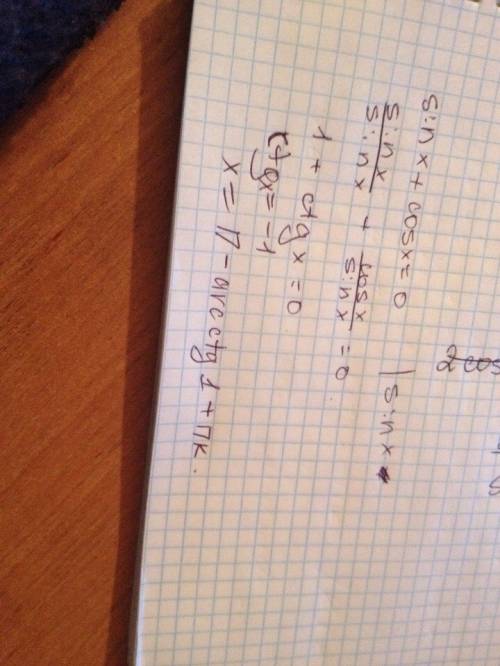 2cos
sin x + cos x = 0 | sin x
sin x / sin x + cos x / sin x = 0
1 + ctg x = 0
ctg x = -1
x = П - arcctg 1 + Пk.